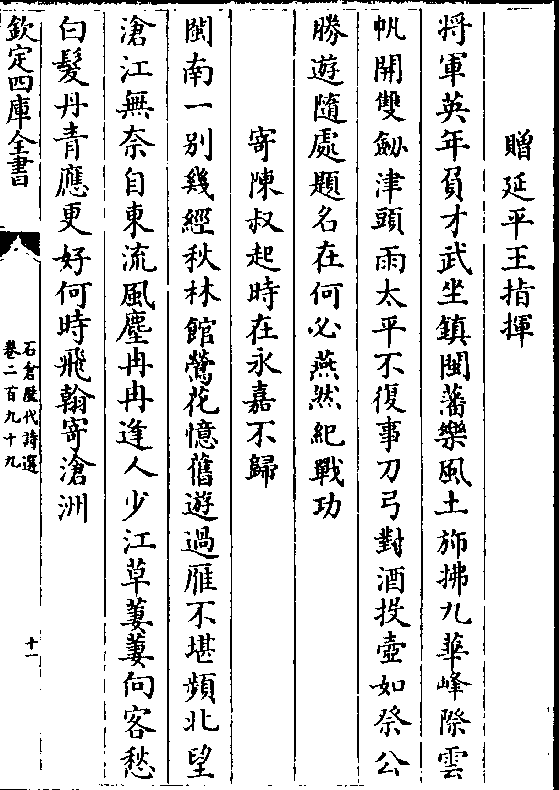 贈延平王指揮
將軍英年負才武坐鎮閩藩樂風土斾拂九華峰際雲
帆開雙劔津頭雨太平不復事刀弓對酒投壺如祭公
勝遊隨處題名在何必燕然紀戰功
寄陳叔起時在永嘉不歸
閩南一别幾經秋林館鶯花憶舊遊過雁不堪頻北望
滄江無奈自東流風塵冉冉逢人少江草萋萋向客愁
白髮丹青應更好何時飛翰寄滄洲
欽定四庫全書
石倉歷代詩選
卷二百九十九
十一